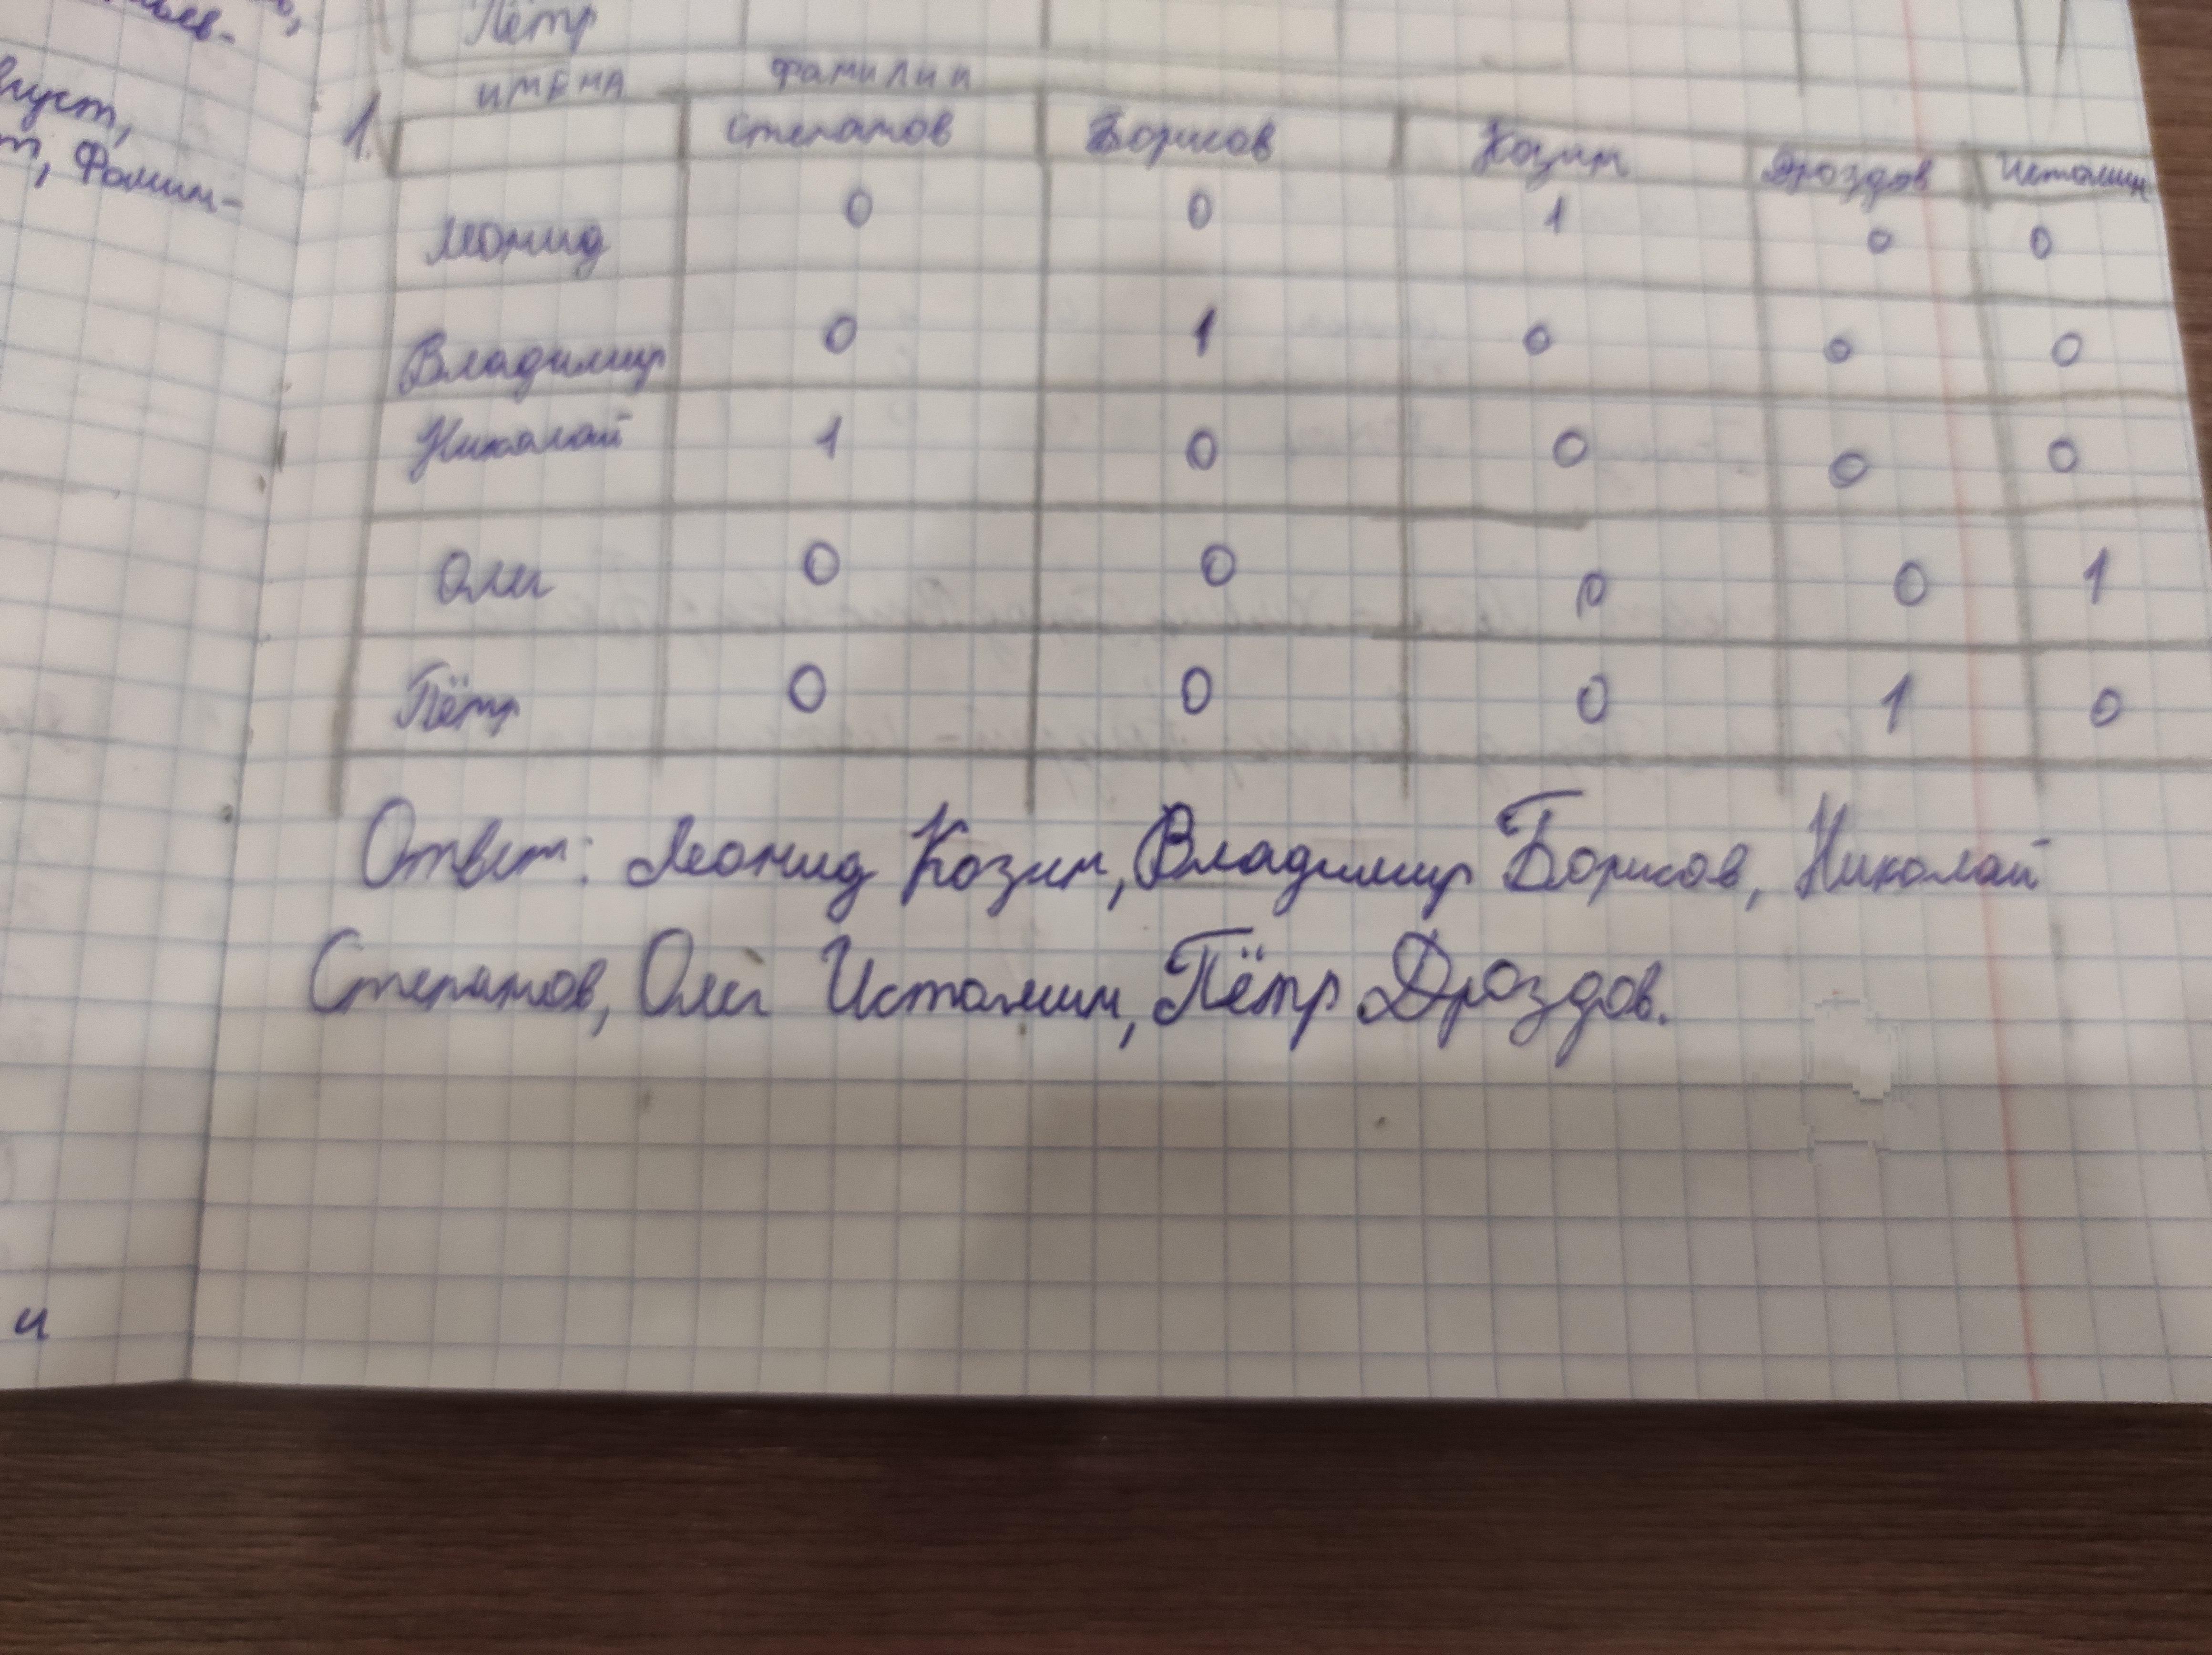 густ,
Фомин-
и
Пётр
имена фамилии
1.
Степанов Борисов Козин Дроздов Истомин
Леонид 0 0 1 0 0
Владимир 0 1 0 0 0
Николай 1 0 0 0 0
Олег 0 0 0 0 1
Пётр 0 0 0 1 0
Ответ: Леонид Козин, Владимир Борисов, Николай
Степанов, Олег Истомин, Пётр Дроздов.